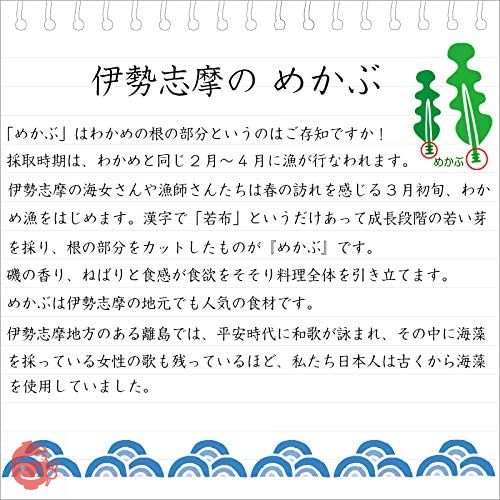 伊勢志摩の めかぶ
めかぶ
「めかぶ」はわかめの根の部分というのはご存知ですか！
採取時期は、わかめと同じ２月～４月に漁が行なわれます。
伊勢志摩の海女さんや漁師さんたちは春の訪れを感じる３月初旬、わか
め漁をはじめます。漢字で「若布」というだけあって成長段階の若い芽
を採り、根の部分をカットしたものが『めかぶ』です。
磯の香り、ねばりと食感が食欲をそそり料理全体を引き立てます。
めかぶは伊勢志摩の地元でも人気の食材です。
伊勢志摩地方のある離島では、平安時代に和歌が詠まれ、その中に海藻
を採っている女性の歌も残っているほど、私たち日本人は古くから海藻
を使用していました。